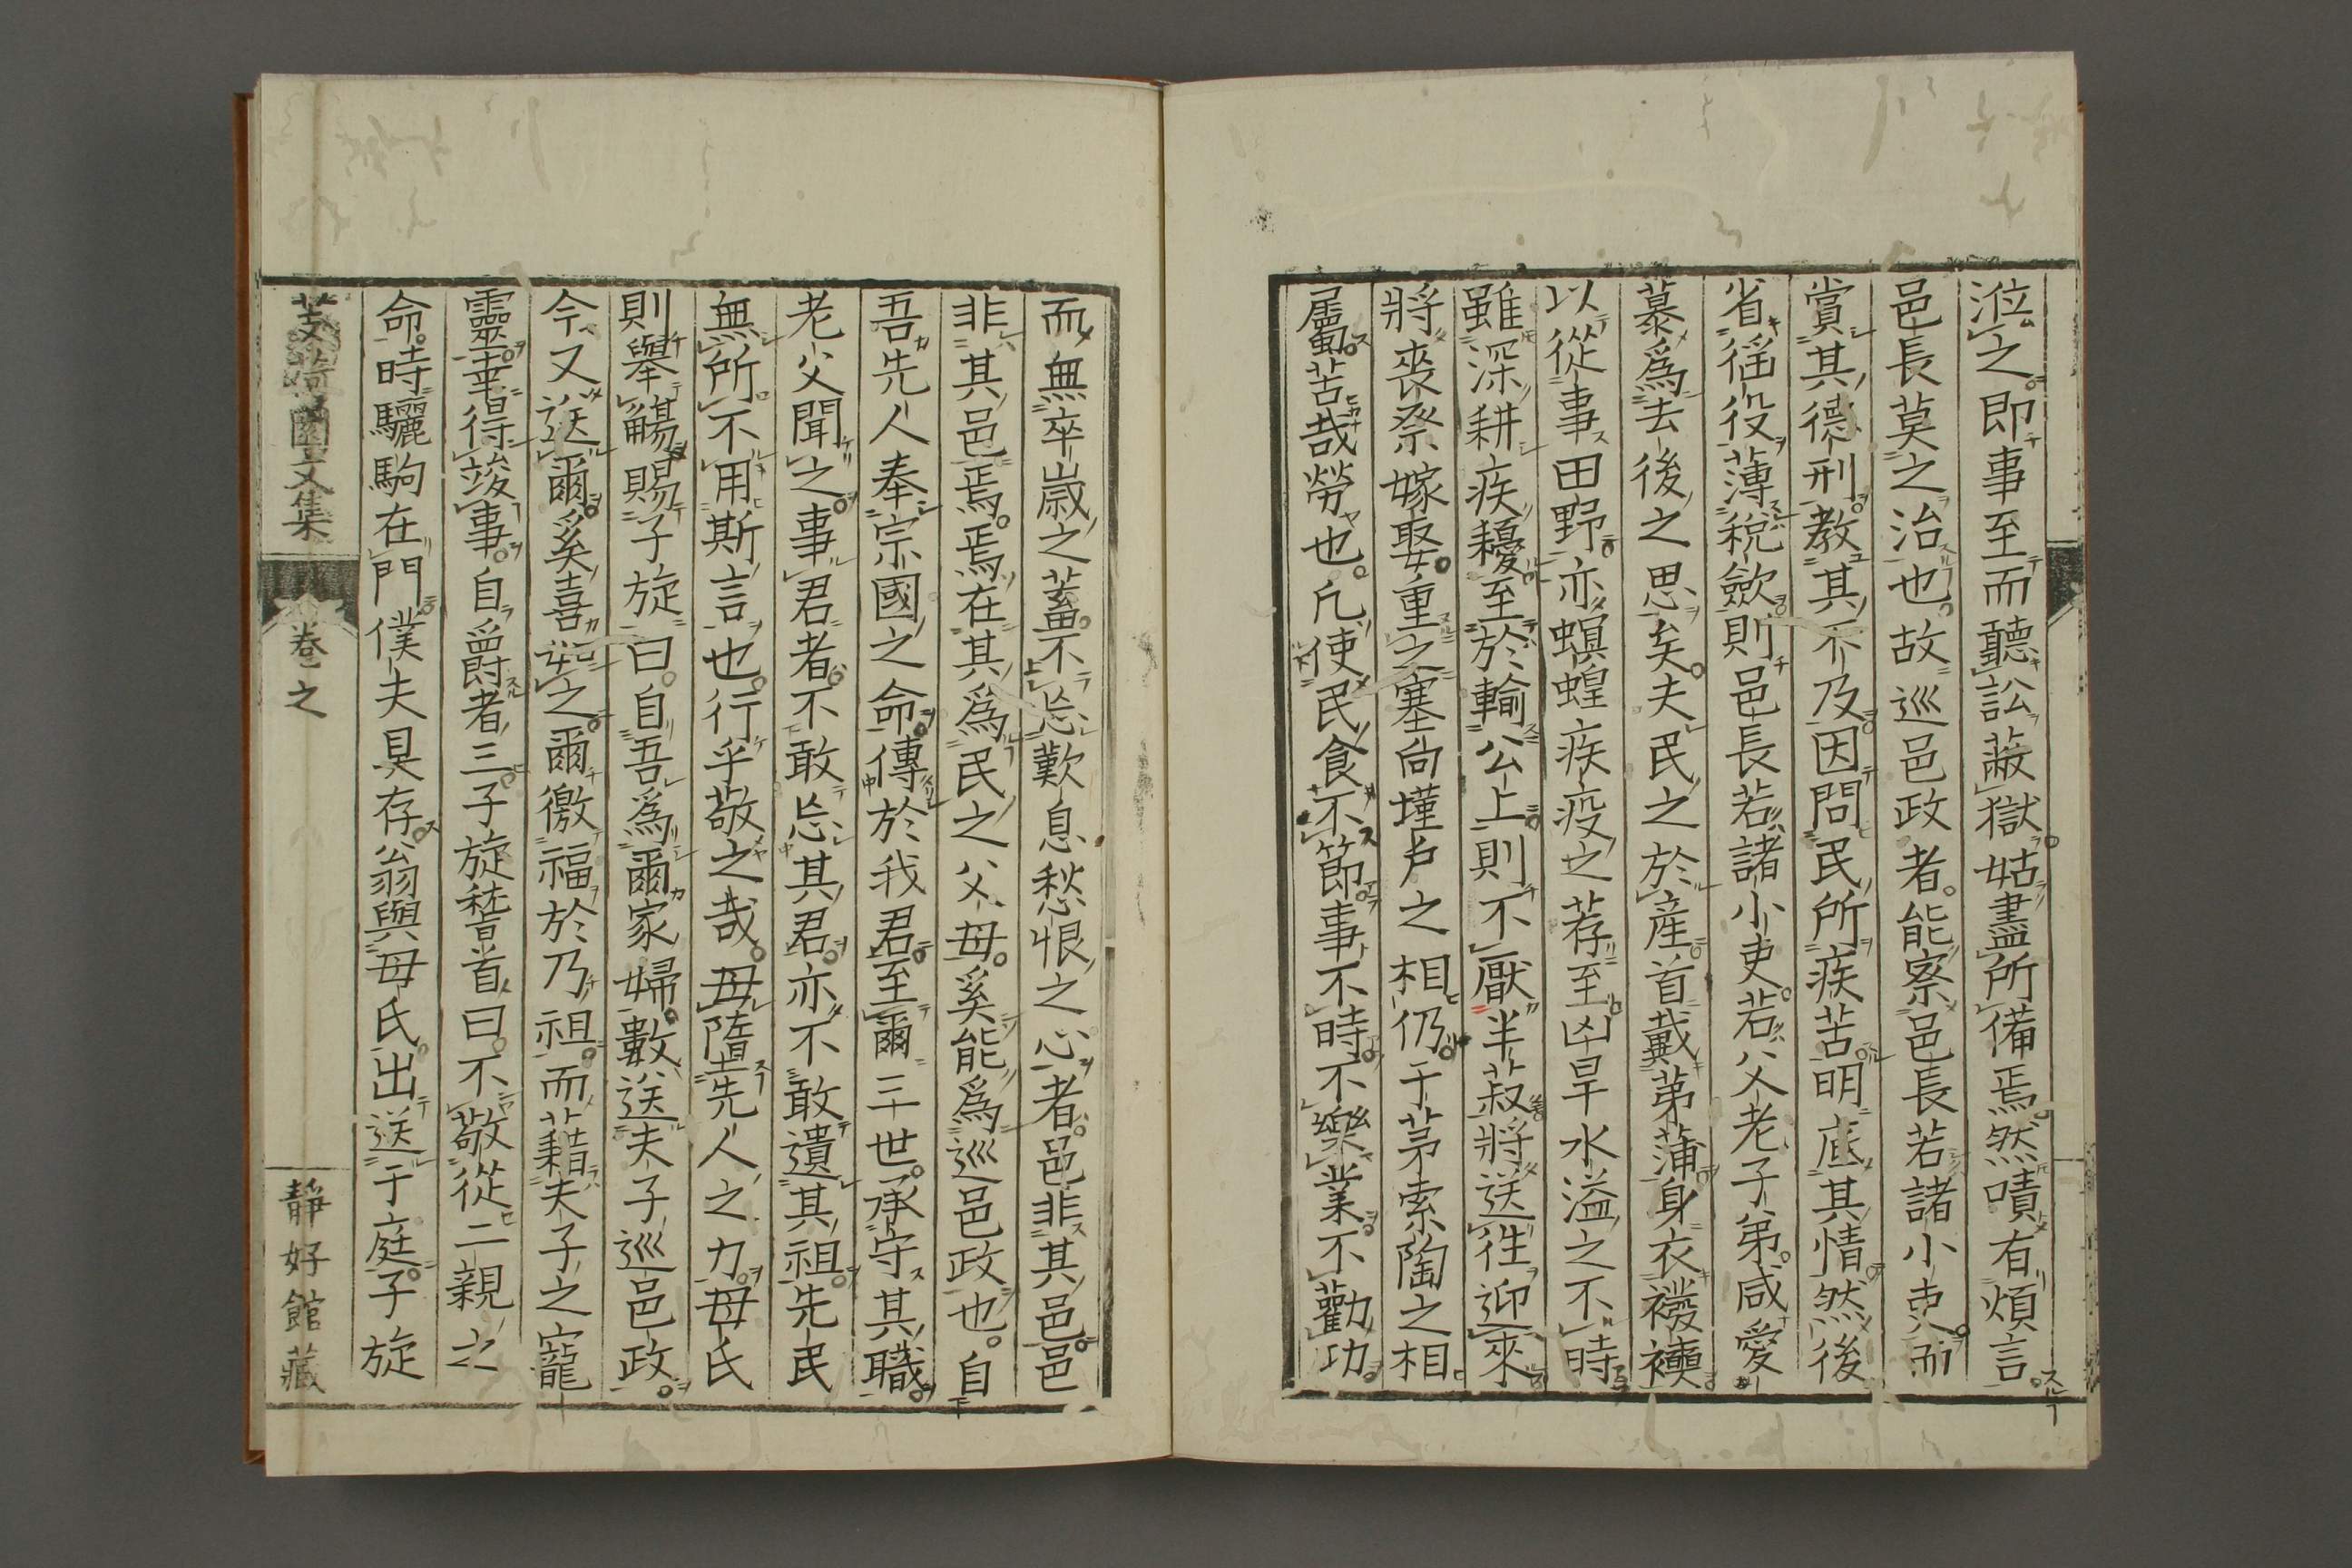 涖之即事至而聽訟蔽獄姑盡所備焉然嘖有煩言
邑長莫之治也故巡邑政者能察邑長若諸小吏而
賞其德刑教其不及因問民所疾苦明底其情然後
省徭役薄稅斂則邑長若諸小吏若父老子弟咸愛
慕爲去後之思矣夫民之於產首戴茅蒲身衣襏襫
以從事田野亦螟蝗疾疫之荐至凶旱水溢之不時
雖深耕疾耰至於輸公上則不厭半菽將送往迎來
將喪祭嫁娶重之塞向墐戶之相仍于茅索陶之相
屬苦哉勞也凡使民食不節事不時不樂業不勸功
而無卒歲之蓄不忘歎息愁恨之心者邑非其邑邑
非其邑焉焉在其爲民之父母奚能爲巡邑政也自
吾先人奉宗國之命傳於我君至爾三世承守其職
老父聞之事君者不敢忘其君亦不敢遺其祖先民
無所不用斯言也行乎敬之哉毋墮先人之力母氏
則舉觴賜子旋曰自吾爲爾家婦數送夫子巡邑政
今又送爾奚喜如之爾徼福於乃祖而藉夫子之寵
靈幸得竣事自爵者三子旋稽首曰不敬從二親之
命時驪駒在門僕夫具存翁與母氏出送于庭子旋
芰荷園文集 卷之 靜好館藏